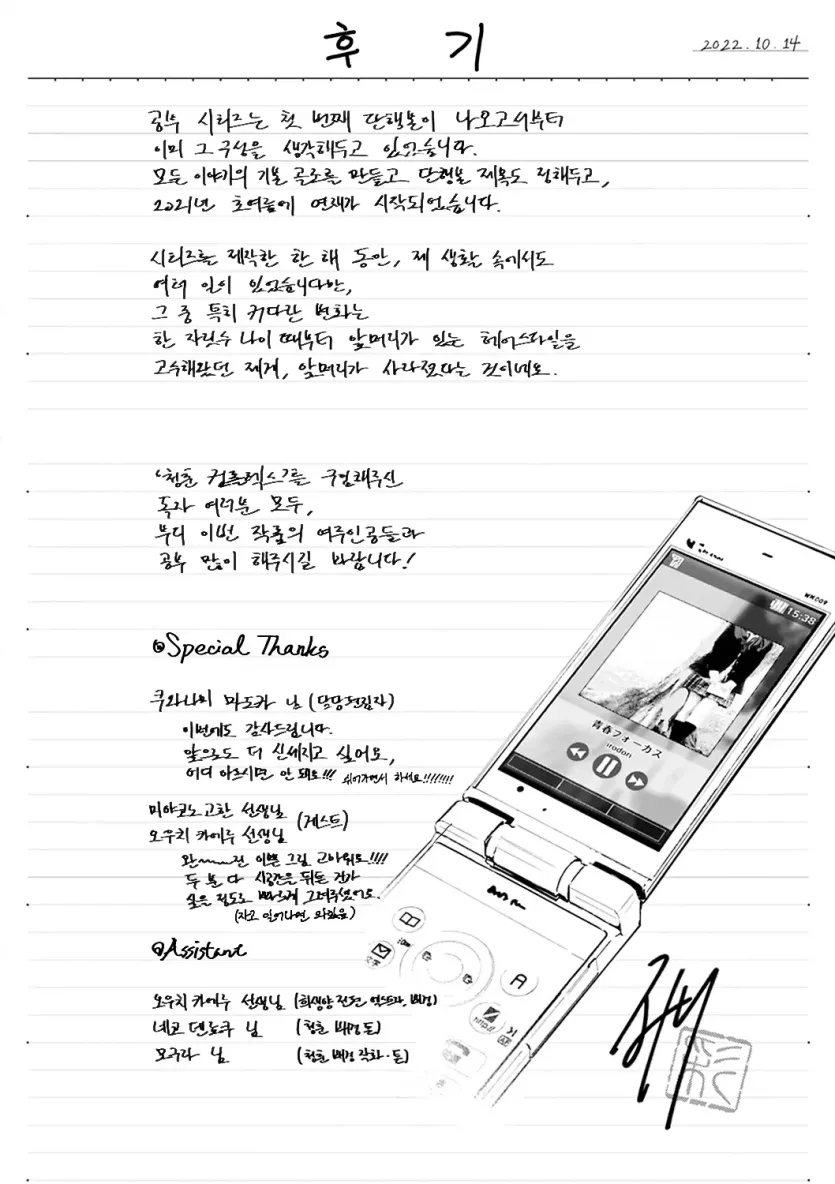 후 기
2022.10.14
공부 시리즈는 첫 번째 단행본이 나오고서부터
이미 그 구상을 생각해두고 있었습니다.
모든 이야기의 기본 골조를 만들고 단행본 제목도 정해두고,
2021년 초여름에 연재가 시작되었습니다.
시리즈를 제작한 한 해 동안, 제 생활 속에서도
여러 일이 있었습니다만,
그 중 특히 커다란 변화는
한 자릿수 나이 때부터 앞머리가 있는 헤어스타일을
고수해왔던 제게, 앞머리가 사라졌다는 것이네요.
'청춘 컴플렉스'를 구입해주신
독자 여러분 모두,
부디 이번 작품의 여주인공들과
공부 많이 해주시길 바랍니다!
Special Thanks
쿠와나비 마도카 님 (담당편집자)
이번에도 감사드립니다.
앞으로도 더 신세지고 싶어요,
어디 아프시면 안 돼요!!! 쉬어가면서 하세요!!!!!!!!
미야코노 고한 선생님
오우치 카에루 선생님 (게스트)
완~~~전 이쁜 그림 고마워요!!!!
두 분 다 시공간을 뒤튼 건가
싶을 정도로 빠르게 그려주셨어요.
(자고 일어나면 와있음)
Assistant
오우치 카에루 선생님 (희생양 전편, 엑스트라, 배경)
네코 덴토쿠 님 (청춘 배경 톤)
모구라 님 (청춘 배경 작화·톤)
15:38
青春フォーカス
itodori
A
文字
http://
彩